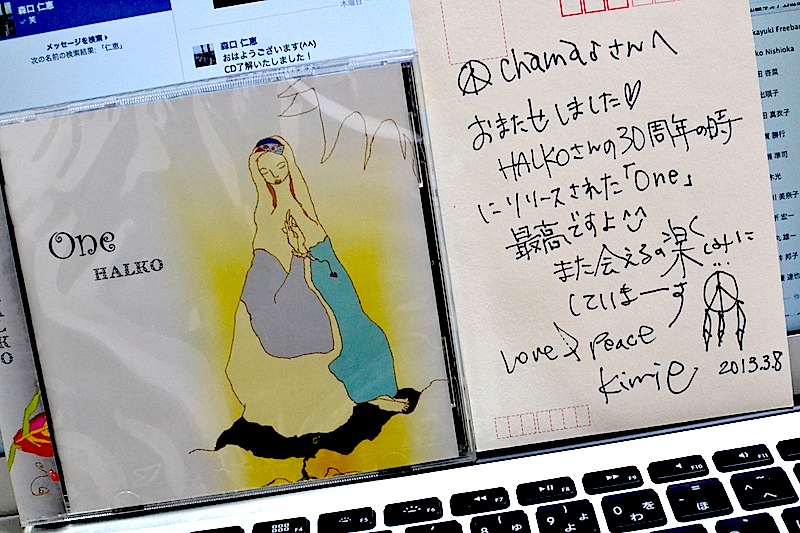 ✓ 笑
メッセージを検索 ▸
次の名前の検索結果: 「仁恵」
木曜日
森口 仁恵
おはようございます(^^)
CD了解いたしました！
One
HALKO
☮ chama♪さんへ
おまたせしました♡
HALKOさんの30周年の時
にリリースされた「One」
最高ですよ^^
また会えるの楽しみに
していまーす
Love ♪ Peace
Kimie
2013.3.8
F4
F5
F6
F7
F8
F9
F10
F11
8 ゅ
9 ょ
0 を わ
= ー ほ
~ ^ へ